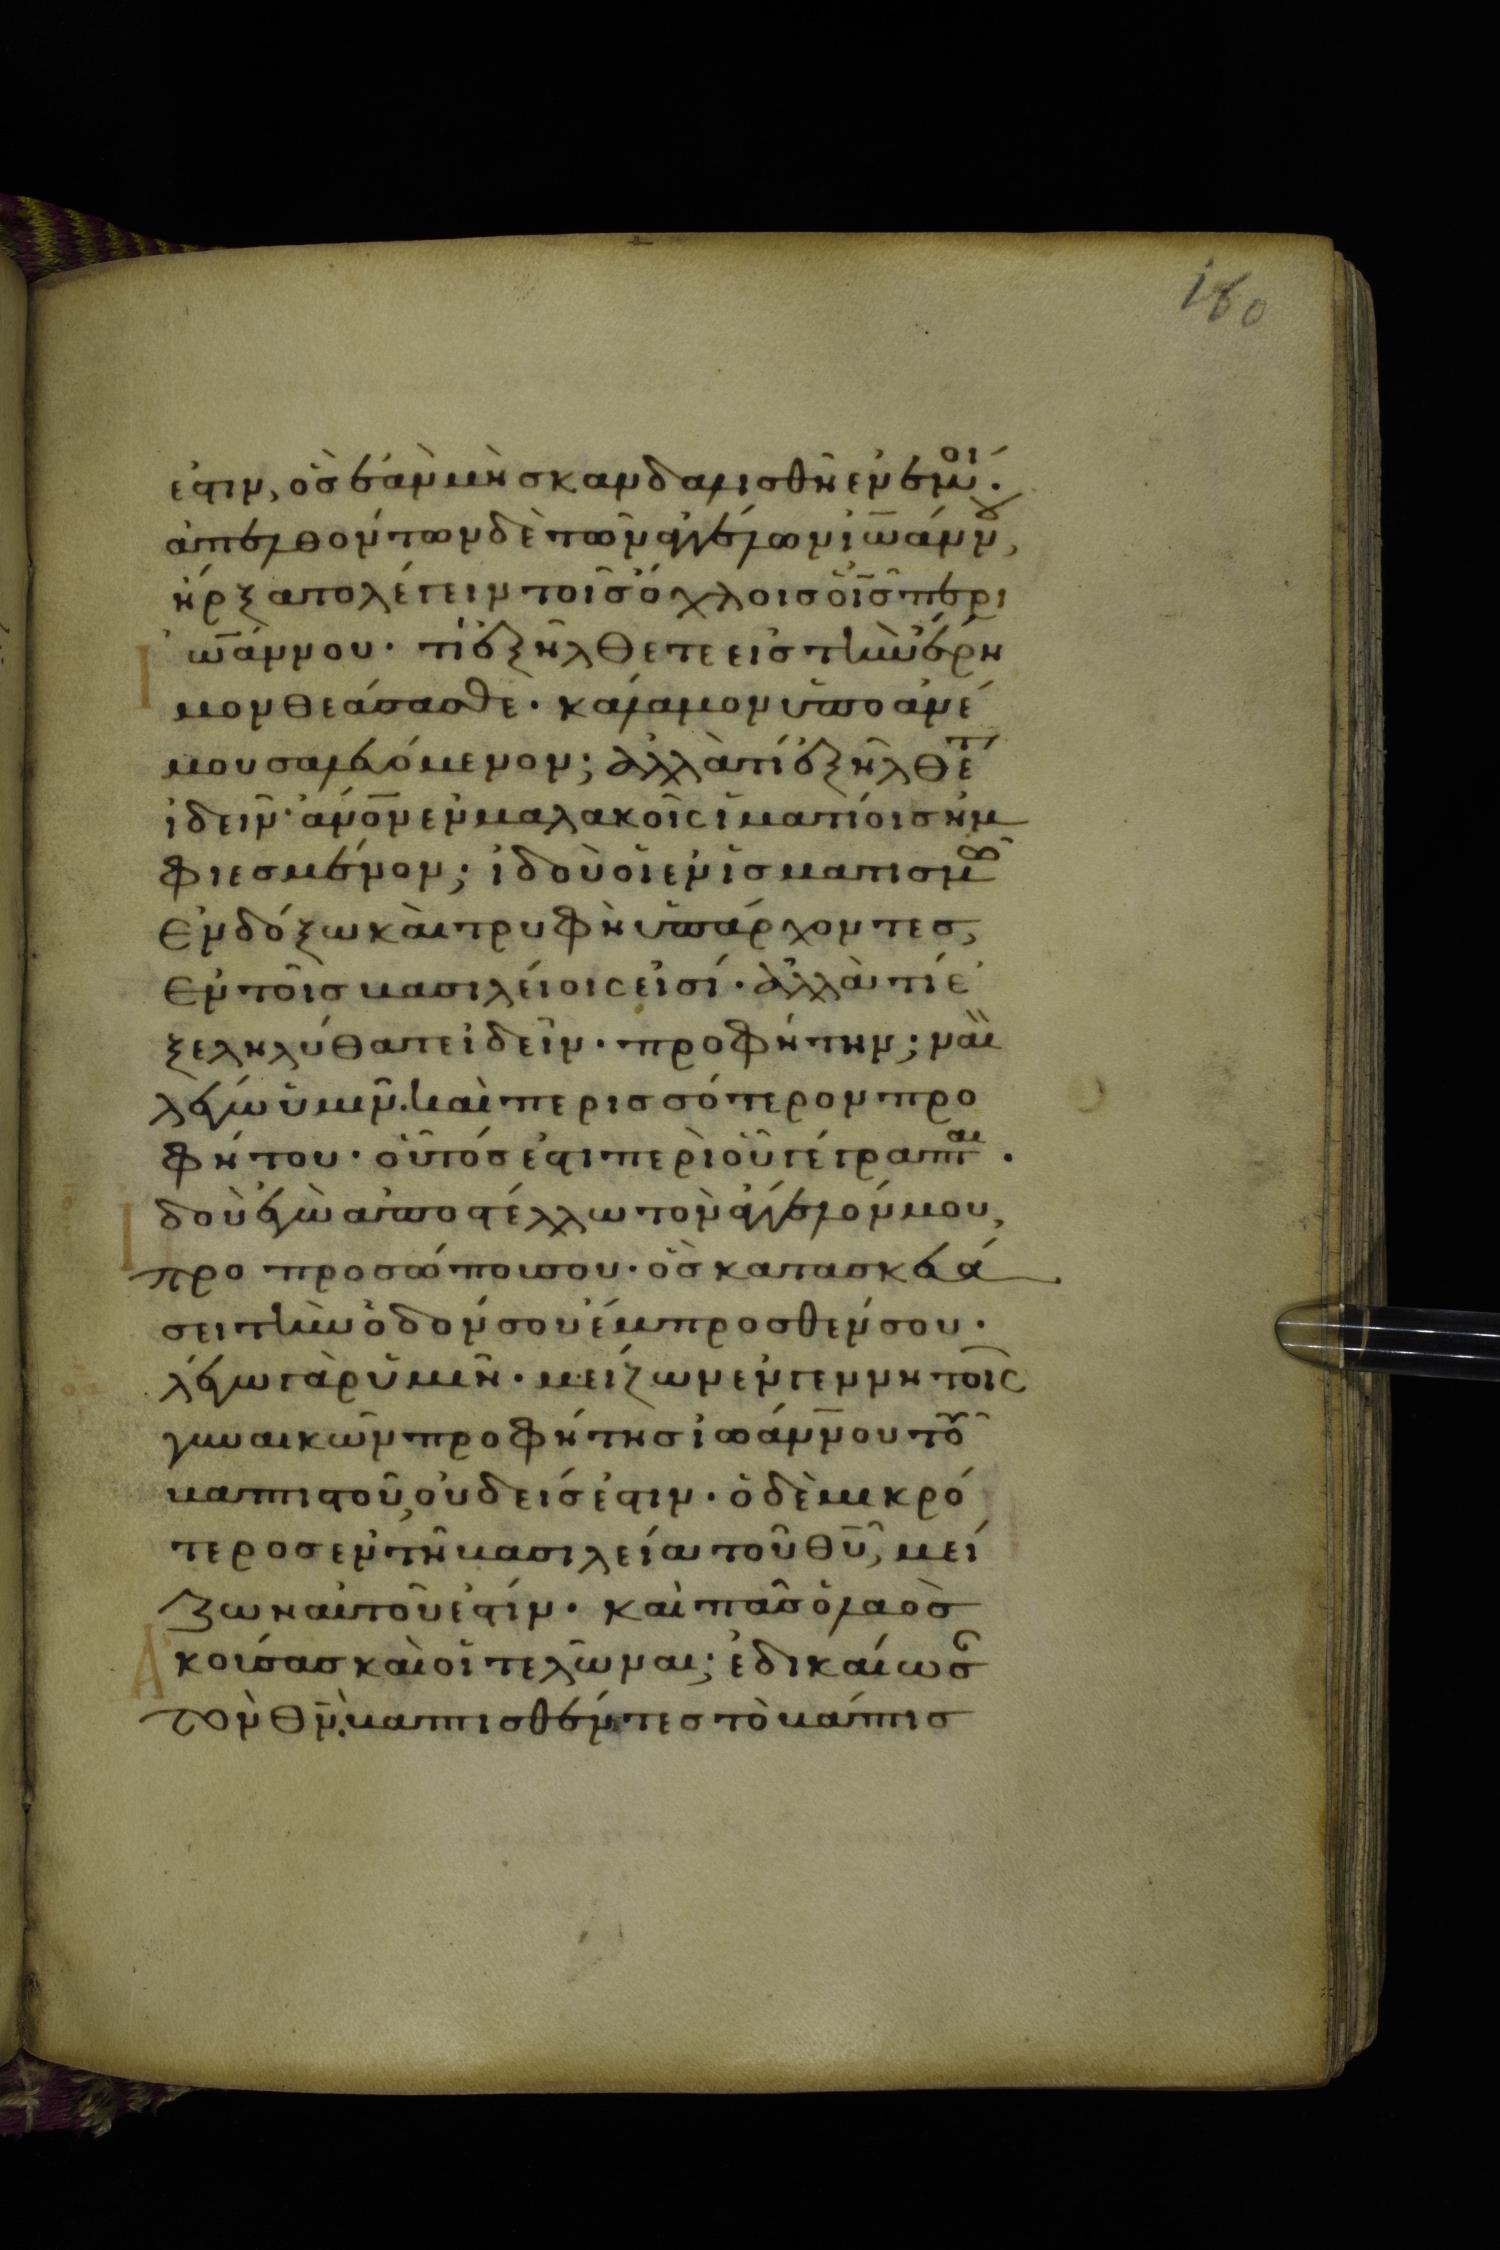 160
ἐστιν, ὃσ ἐὰν μὴ σκανδαλισθῆ ἐν ἐμοί.
ἀπελθόντων δὲ τῶν ἀγγέλων ἰωάννου,
ἤρξατο λέγειν τοῖσ ὄχλοισ οἷσ περι
ἰωάννου· τί ἐξήλθετε εἰσ τὴν ἐρη
μον θεάσασθε· καλαμον ὑπο ἀνέ
μου σαλευόμενον; ἀλλὰ τί ἐξῆλθετέ
ἰδεῖν· ἀνον ἐν μαλακοῖς ἱματίοισ ἠμ
φιεσμένον; ἰδοὺ οἱ ἐν ἱσματισμῶ
ἐνδόξω καὶ τρυφὴ ὑπάρχοντεσ,
ἐν τοῖσ βασιλείοις εἰσί· ἀλλὰ τί ἐ
ξεληλύθατε ἰδεῖν· προφήτην; ναῒ
λέγω ὑμῖν. καὶ περισσότερον προ
φήτου· οὗτόσ ἐστι περὶ οὗ γέγραπται.
Ιδοὺ ἐγὼ ἀποστέλλω τὸν ἄγγελόν μου,
προ προσώπου σου· ὃσ κατασκευά
σει τὴν ὁδόν σου ἔμπροσθέν σου.
λέγω γὰρ ὑμῖν· μείζων ἐν γεννητοῖς
γυναικῶν προφήτησ ἰωάννου τοῦ
βαπτιστοῦ, οὐδείσ ἐστιν· ὁ δὲ μικρό
τεροσ ἐν τῆ βασιλεία τοῦ θυ, μεί
ζων αὐτοῦ ἐστίν· καὶ πᾶσ ὁ λαὸσ
Ἀκούσασ καὶ οἱ τελῶναι; ἐδικαίωσ
τὸν θν· βαπτισθέντεσ τὸ βάπτισ